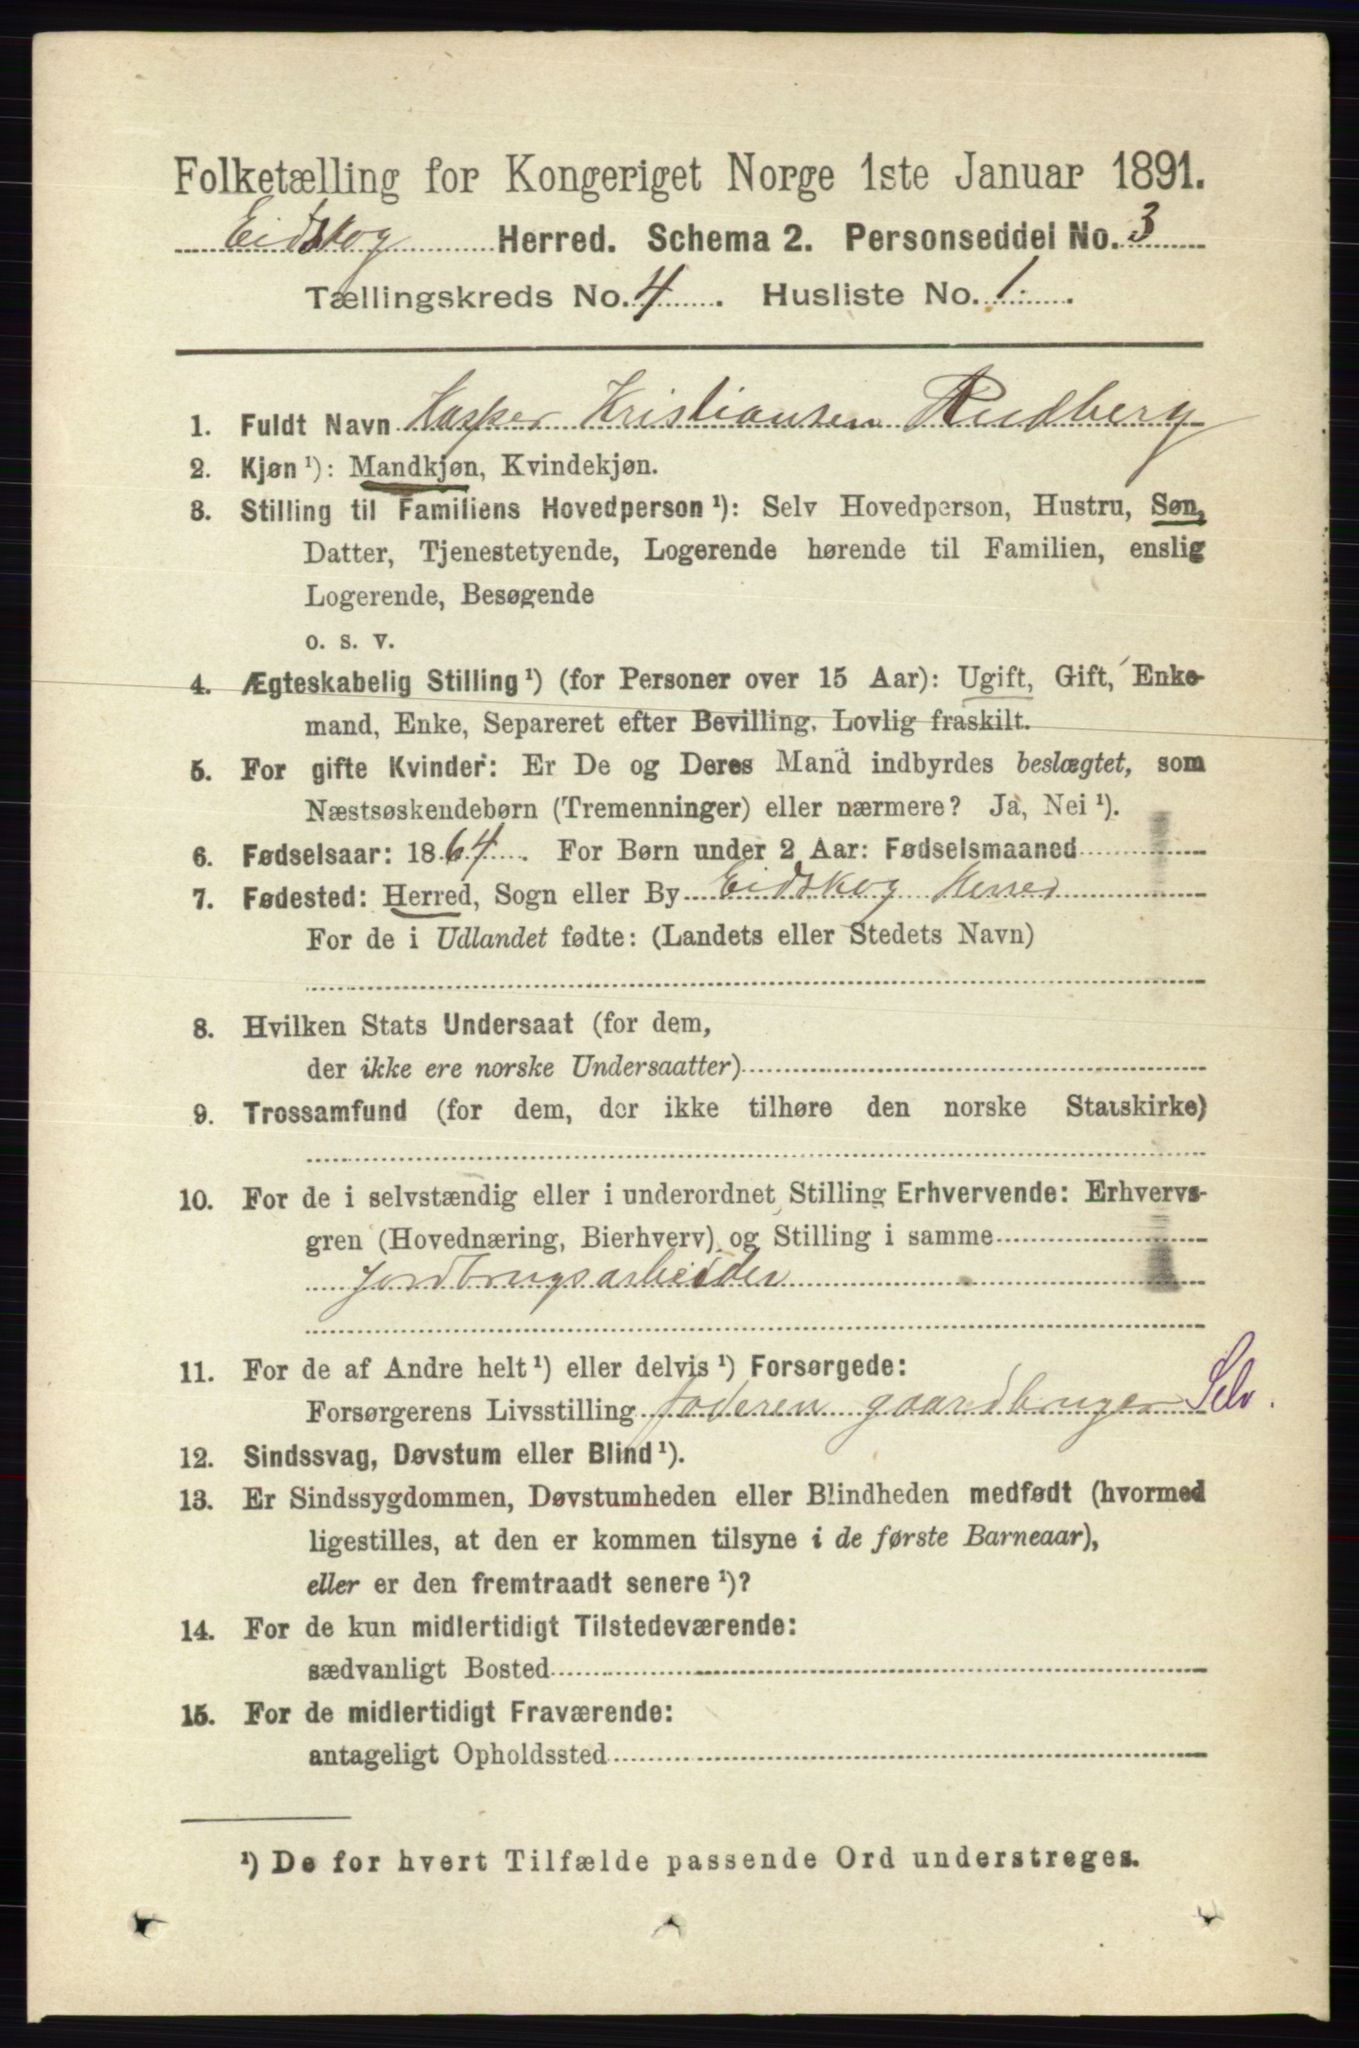 Folketælling for Kongeriget Norge 1ste Januar 1891.
Eidskog Herred. Schema 2. Personseddel No. 3
Tællingskreds No. 4. Husliste No. 1.
1. Fuldt Navn Kasper Kristiansen Rudberg
2. Kjøn ¹): Mandkjøn, Kvindekjøn.
3. Stilling til Familiens Hovedperson ¹): Selv Hovedperson, Hustru, Søn,
Datter, Tjenestetyende, Logerende hørende til Familien, enslig
Logerende, Besøgende
o. s. v.
4. Ægteskabelig Stilling ¹) (for Personer over 15 Aar): Ugift, Gift, Enke-
mand, Enke, Separeret efter Bevilling, Lovlig fraskilt.
5. For gifte Kvinder: Er De og Deres Mand indbyrdes beslægtet, som
Næstsøskendebørn (Tremenninger) eller nærmere? Ja, Nei ¹).
6. Fødselsaar: 1864. For Børn under 2 Aar: Fødselsmaaned
7. Fødested: Herred, Sogn eller By Eidskog Herred
For de i Udlandet fødte: (Landets eller Stedets Navn)
8. Hvilken Stats Undersaat (for dem,
der ikke ere norske Undersaatter)
9. Trossamfund (for dem, der ikke tilhøre den norske Statskirke)
10. For de i selvstændig eller i underordnet Stilling Erhvervende: Erhvervs-
gren (Hovednæring, Bierhverv) og Stilling i samme
jordbrugsarbeider
11. For de af Andre helt ¹) eller delvis ¹) Forsørgede:
Forsørgerens Livsstilling faderen gaardbruger Selv.
12. Sindssvag, Døvstum eller Blind ¹).
13. Er Sindssygdommen, Døvstumheden eller Blindheden medfødt (hvormed
ligestilles, at den er kommen tilsyne i de første Barneaar),
eller er den fremtraadt senere ¹)?
14. For de kun midlertidigt Tilstedeværende:
sædvanligt Bosted
15. For de midlertidigt Fraværende:
antageligt Opholdssted
¹) De for hvert Tilfælde passende Ord understreges.